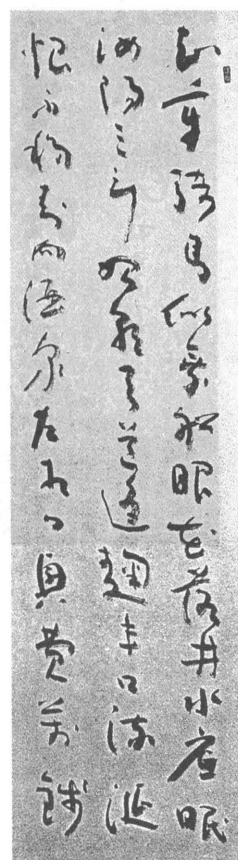 知章騎馬似乘船眼花落井水底眠
汝陽三斗始朝天道逢麴車口流涎
恨不移封向酒泉左相日興費萬錢